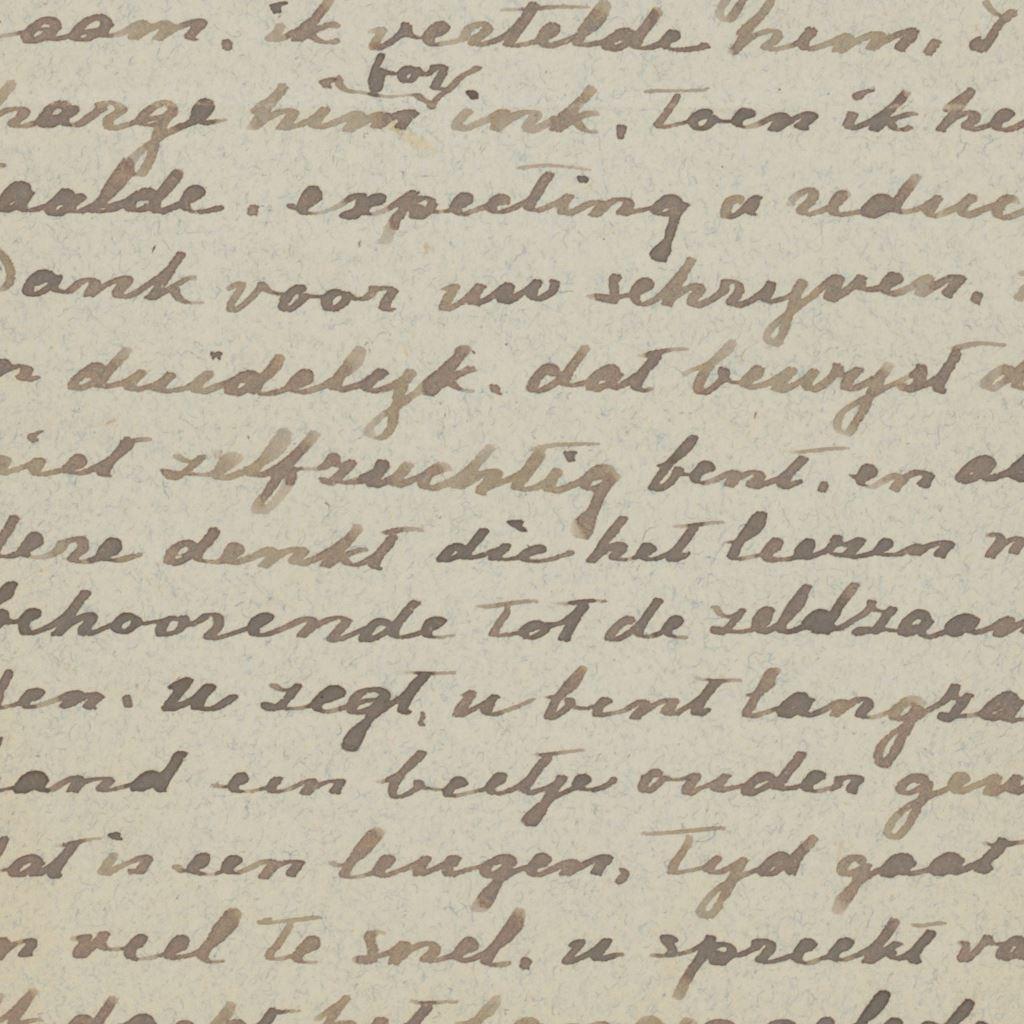 aam. ik vertelde hem, I
harge him for ink. Toen ik he
aalde. expecting a reduc
Dank voor uw schryven.
n duidelyk. dat bewyst d
niet zelfzuchtig bent. en al
dere denkt die het leezen m
behoorende tot de zeldzaam
den. U zegt, u bent langza
hand een beetje ouder gew
dat is een leugen, Tyd gaat
n veel te snel. u spreekt va